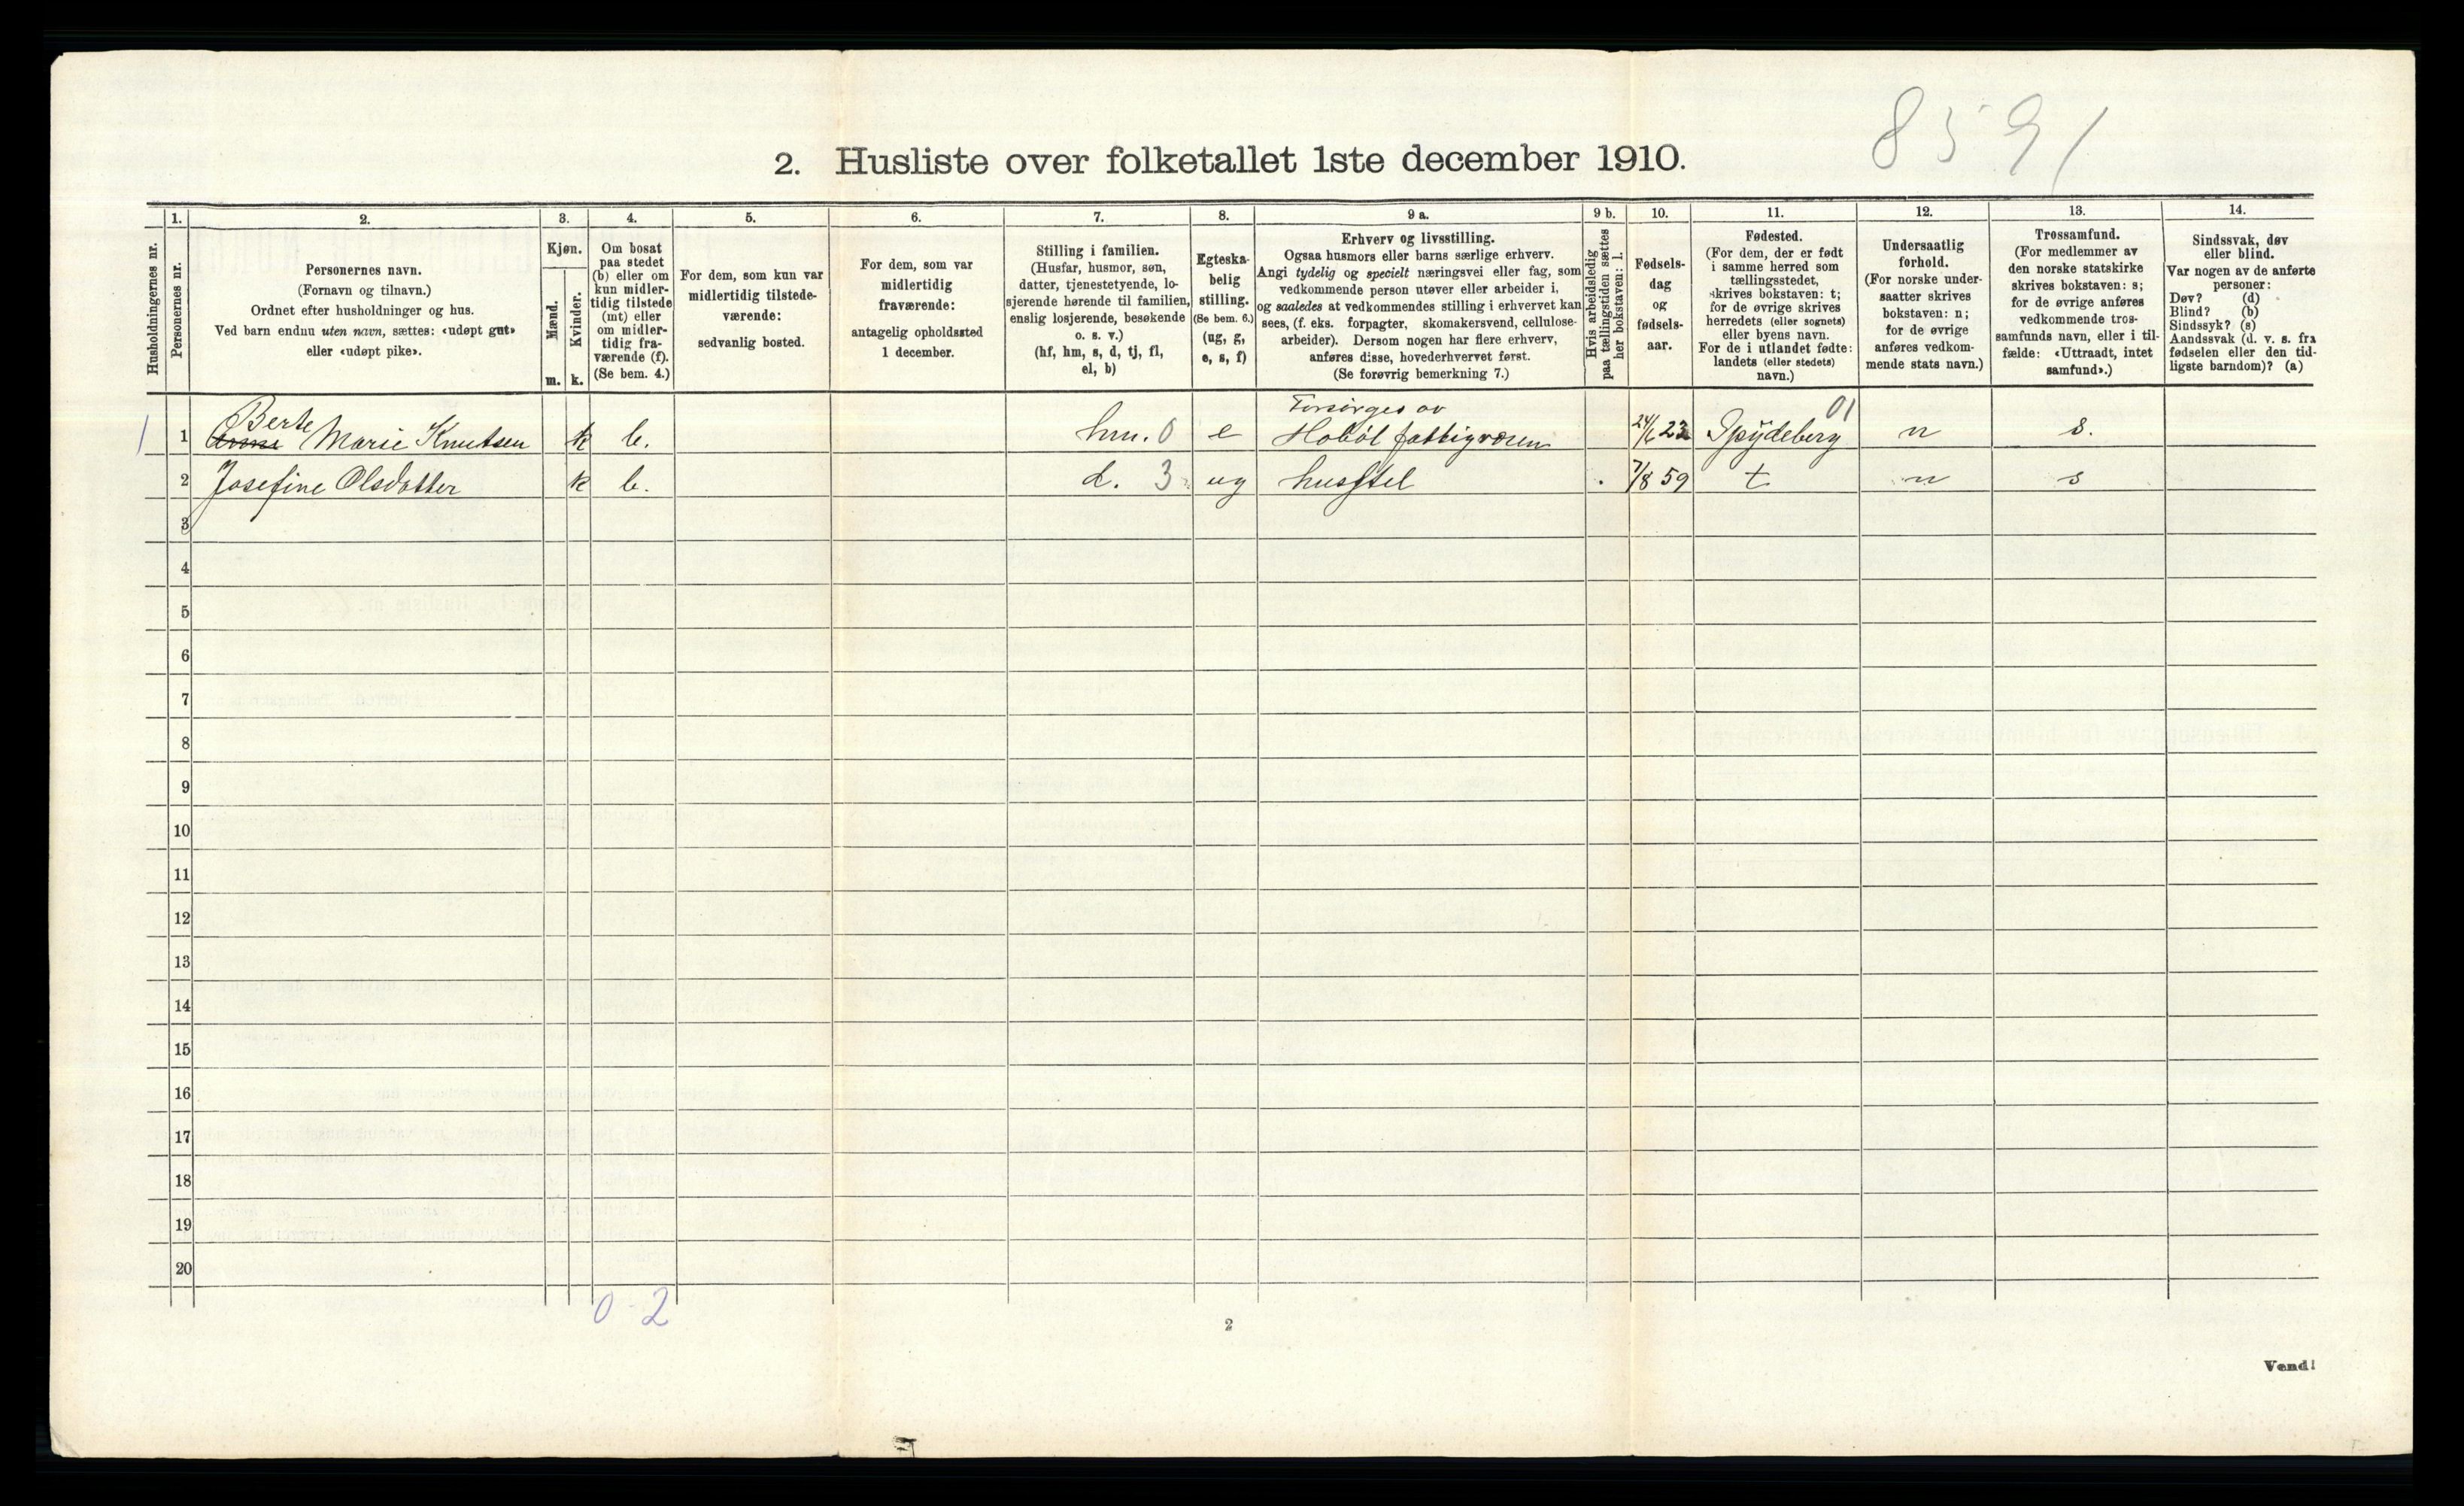 8591
2. Husliste over folketallet 1ste december 1910.
Husholdningernes nr.
1.
Personernes nr.
2.
Personernes navn.
(Fornavn og tilnavn.)
Ordnet efter husholdninger og hus.
Ved barn endnu uten navn, sættes: «udøpt gut»
eller «udøpt pike».
3.
Kjøn.
Mænd.
m.
Kvinder.
k.
4.
Om bosat
paa stedet
(b) eller om
kun midler-
tidig tilstede
(mt) eller
om midler-
tidig fra-
værende (f).
(Se bem. 4.)
5.
For dem, som kun var
midlertidig tilstede-
værende:
sedvanlig bosted.
6.
For dem, som var
midlertidig
fraværende:
antagelig opholdssted
1 december.
7.
Stilling i familien.
(Husfar, husmor, søn,
datter, tjenestetyende, lo-
sjerende hørende til familien,
enslig losjerende, besøkende
o. s. v.)
(hf, hm, s, d, tj, fl,
el, b)
8.
Egteska-
belig
stilling.
(Se bem. 6.)
(ug, g,
e, s, f)
9 a.
Erhverv og livsstilling.
Ogsaa husmors eller barns særlige erhverv.
Angi tydelig og specielt næringsvei eller fag, som
vedkommende person utøver eller arbeider i,
og saaledes at vedkommendes stilling i erhvervet kan
sees, (f. eks. forpagter, skomakersvend, cellulose-
arbeider). Dersom nogen har flere erhverv,
anføres disse, hovederhvervet først.
(Se forøvrig bemerkning 7.)
9 b.
Hvis arbeidsledig
paa tællingstiden sættes
her bokstaven: l.
10.
Fødsels-
dag
og
fødsels-
aar.
11.
Fødested.
(For dem, der er født
i samme herred som
tællingsstedet,
skrives bokstaven: t;
for de øvrige skrives
herredets (eller sognets)
eller byens navn.
For de i utlandet fødte:
landets (eller stedets)
navn.)
12.
Undersaatlig
forhold.
(For norske under-
saatter skrives
bokstaven: n;
for de øvrige
anføres vedkom-
mende stats navn.)
13.
Trossamfund.
(For medlemmer av
den norske statskirke
skrives bokstaven: s;
for de øvrige anføres
vedkommende tros-
samfunds navn, eller i til-
fælde: «Uttraadt, intet
samfund».)
14.
Sindssvak, døv
eller blind.
Var nogen av de anførte
personer:
Døv? (d)
Blind? (b)
Sindssyk? (s)
Aandssvak (d. v. s. fra
fødselen eller den tid-
ligste barndom)? (a)
Berte Forsörges av 01
1 1 Anne Marie Knutsen k b. hm. 0 e Hobøl fattigvæsen 24/6 23 Spydeberg n s.
2 Josefine Olsdatter k b. d. 3 ug husstel 7/8 59 t n s
3
4
5
6
7
8
9
10
11
12
13
14
15
16
17
18
19
20
0 - 2
2
Vend!